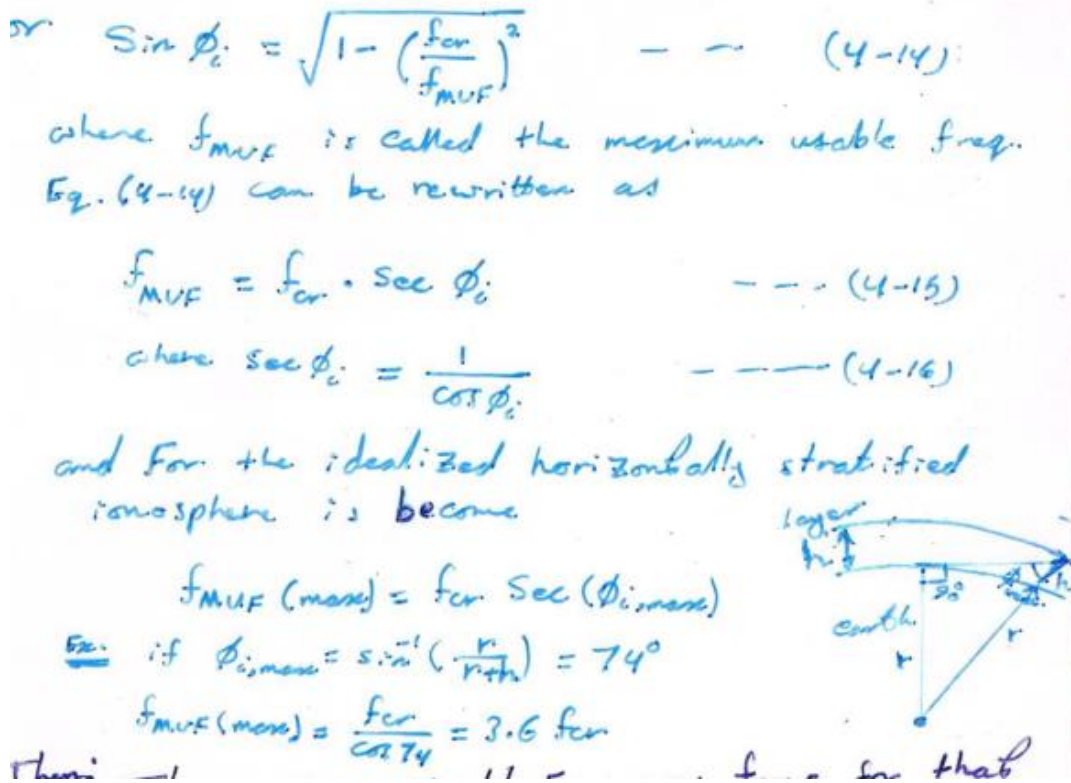 or Sin Ø_i = √(1 - (f_cr / f_MUF)²) - - (4-14)
where f_MUF is called the maximum usable freq.
Eq. (4-14) can be rewritten as
f_MUF = f_cr . Sec Ø_i - - - (4-15)
where sec Ø_i = 1 / cos Ø_i - - - - (4-16)
and For the idealized horizontally stratified
ionosphere is become
layer
h
90°
h
earth
r
r
f_MUF (max) = f_cr Sec (Ø_i,max)
Ex. if Ø_i,max = sin⁻¹ (r / r+h) = 74°
f_MUF (max) = f_cr / cos 74 = 3.6 f_cr
for that